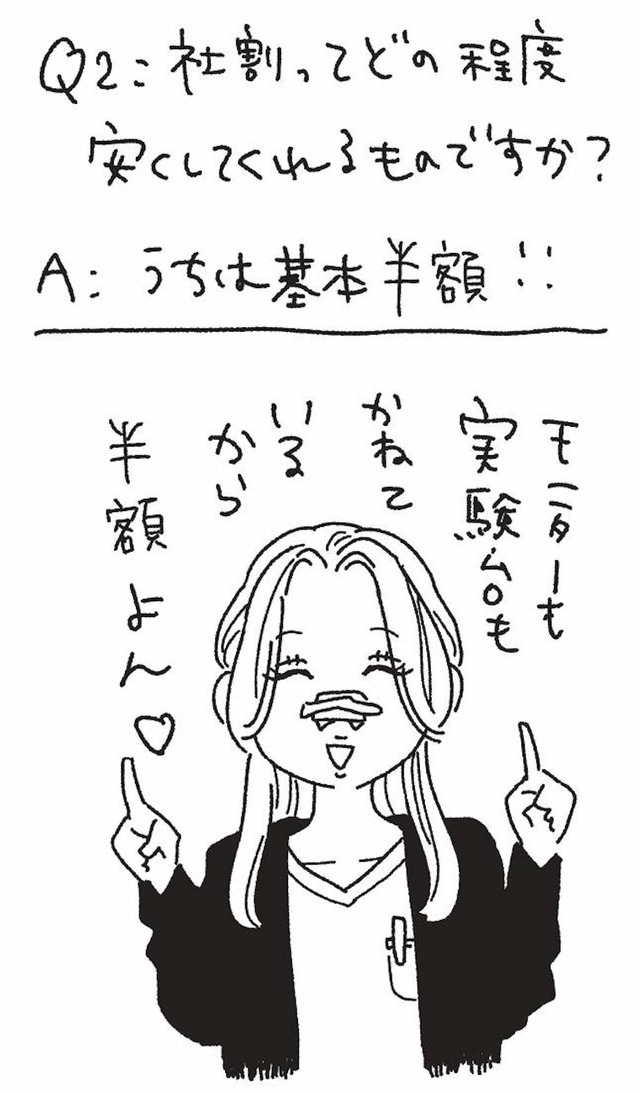 Q2：社割ってどの程度
安くしてくれるものですか？
A：うちは基本半額！！
モニターも
実験台も
かねて
いる
から
半額よん♡